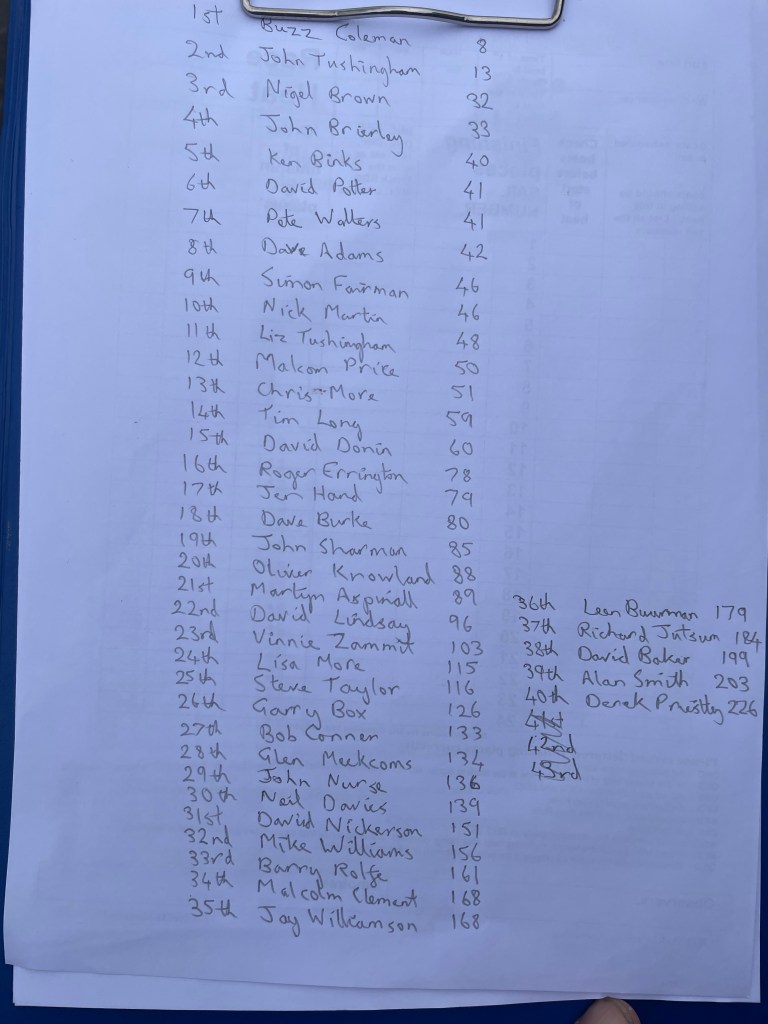 1st Buzz Coleman 8
2nd John Tushingham 13
3rd Nigel Brown 32
4th John Brierley 33
5th Ken Binks 40
6th David Potter 41
7th Pete Walters 41
8th Dave Adams 42
9th Simon Fairman 46
10th Nick Martin 46
11th Liz Tushingham 48
12th Malcom Price 50
13th Chris More 51
14th Tim Long 59
15th David Donin 60
16th Roger Errington 78
17th Jeff Hand 79
18th Dave Burke 80
19th John Sharman 85
20th Oliver Knowland 88
21st Martyn Aspinall 89
22nd David Lindsay 96
23rd Vinnie Zammit 103
24th Lisa More 115
25th Steve Taylor 116
26th Garry Box 126
27th Bob Conner 133
28th Glen Meekcoms 134
29th John Nurse 136
30th Neil Davies 139
31st David Nickerson 151
32nd Mike Williams 156
33rd Barry Rolfe 161
34th Malcolm Clement 168
35th Jay Williamson 168
36th Leen Buurman 179
37th Richard Jutsum 184
38th David Baker 199
39th Alan Smith 203
40th Derek Priestley 226
41st
42nd
43rd